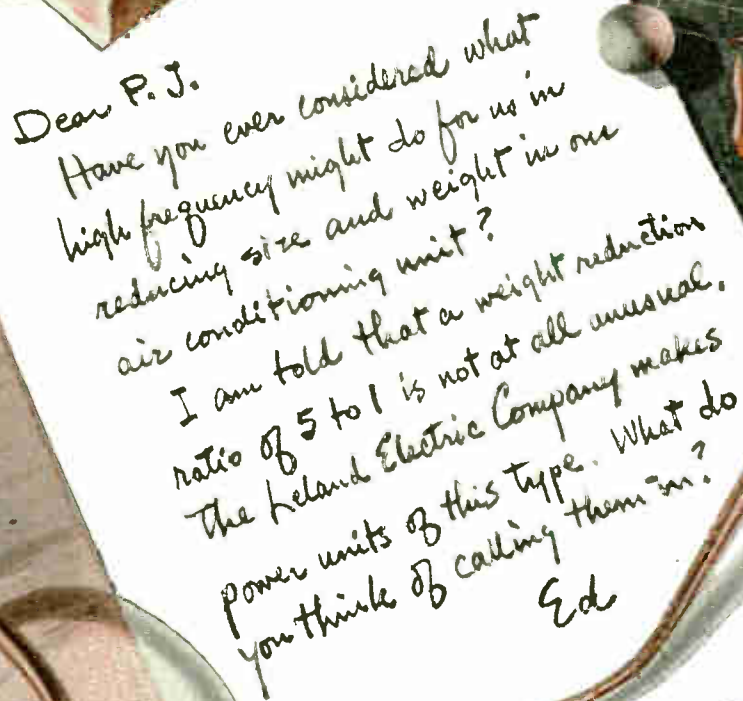 Dear P. J.
Have you ever considered what
high frequency might do for us in
reducing size and weight in our
air conditioning unit?
I am told that a weight reduction
ratio of 5 to 1 is not at all unusual.
The Leland Electric Company makes
power units of this type. What do
you think of calling them in?
Ed